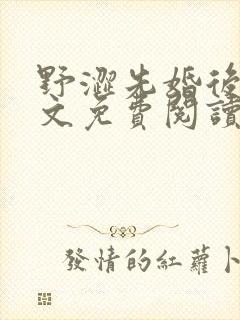 野澀先婚後
文免費閱讀
發情的紅蘿卜